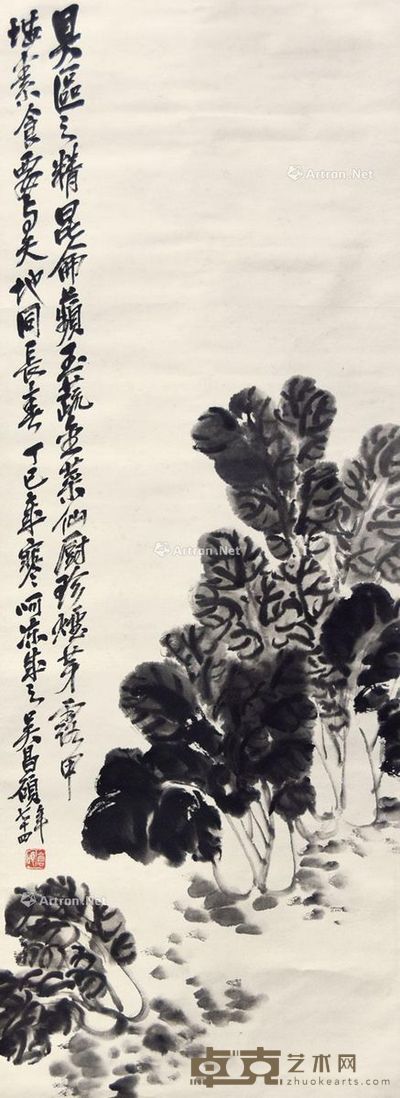 具區之精昆侖蘋玉蔬金菜仙厨珍煙芽露甲
堪素食要与天地同長春 丁巳歲寒呵凍成之 吳昌碩年七十四
Artron.Net
Artron.Net
Artron.Net
卓克艺术网
zhuokearts.com